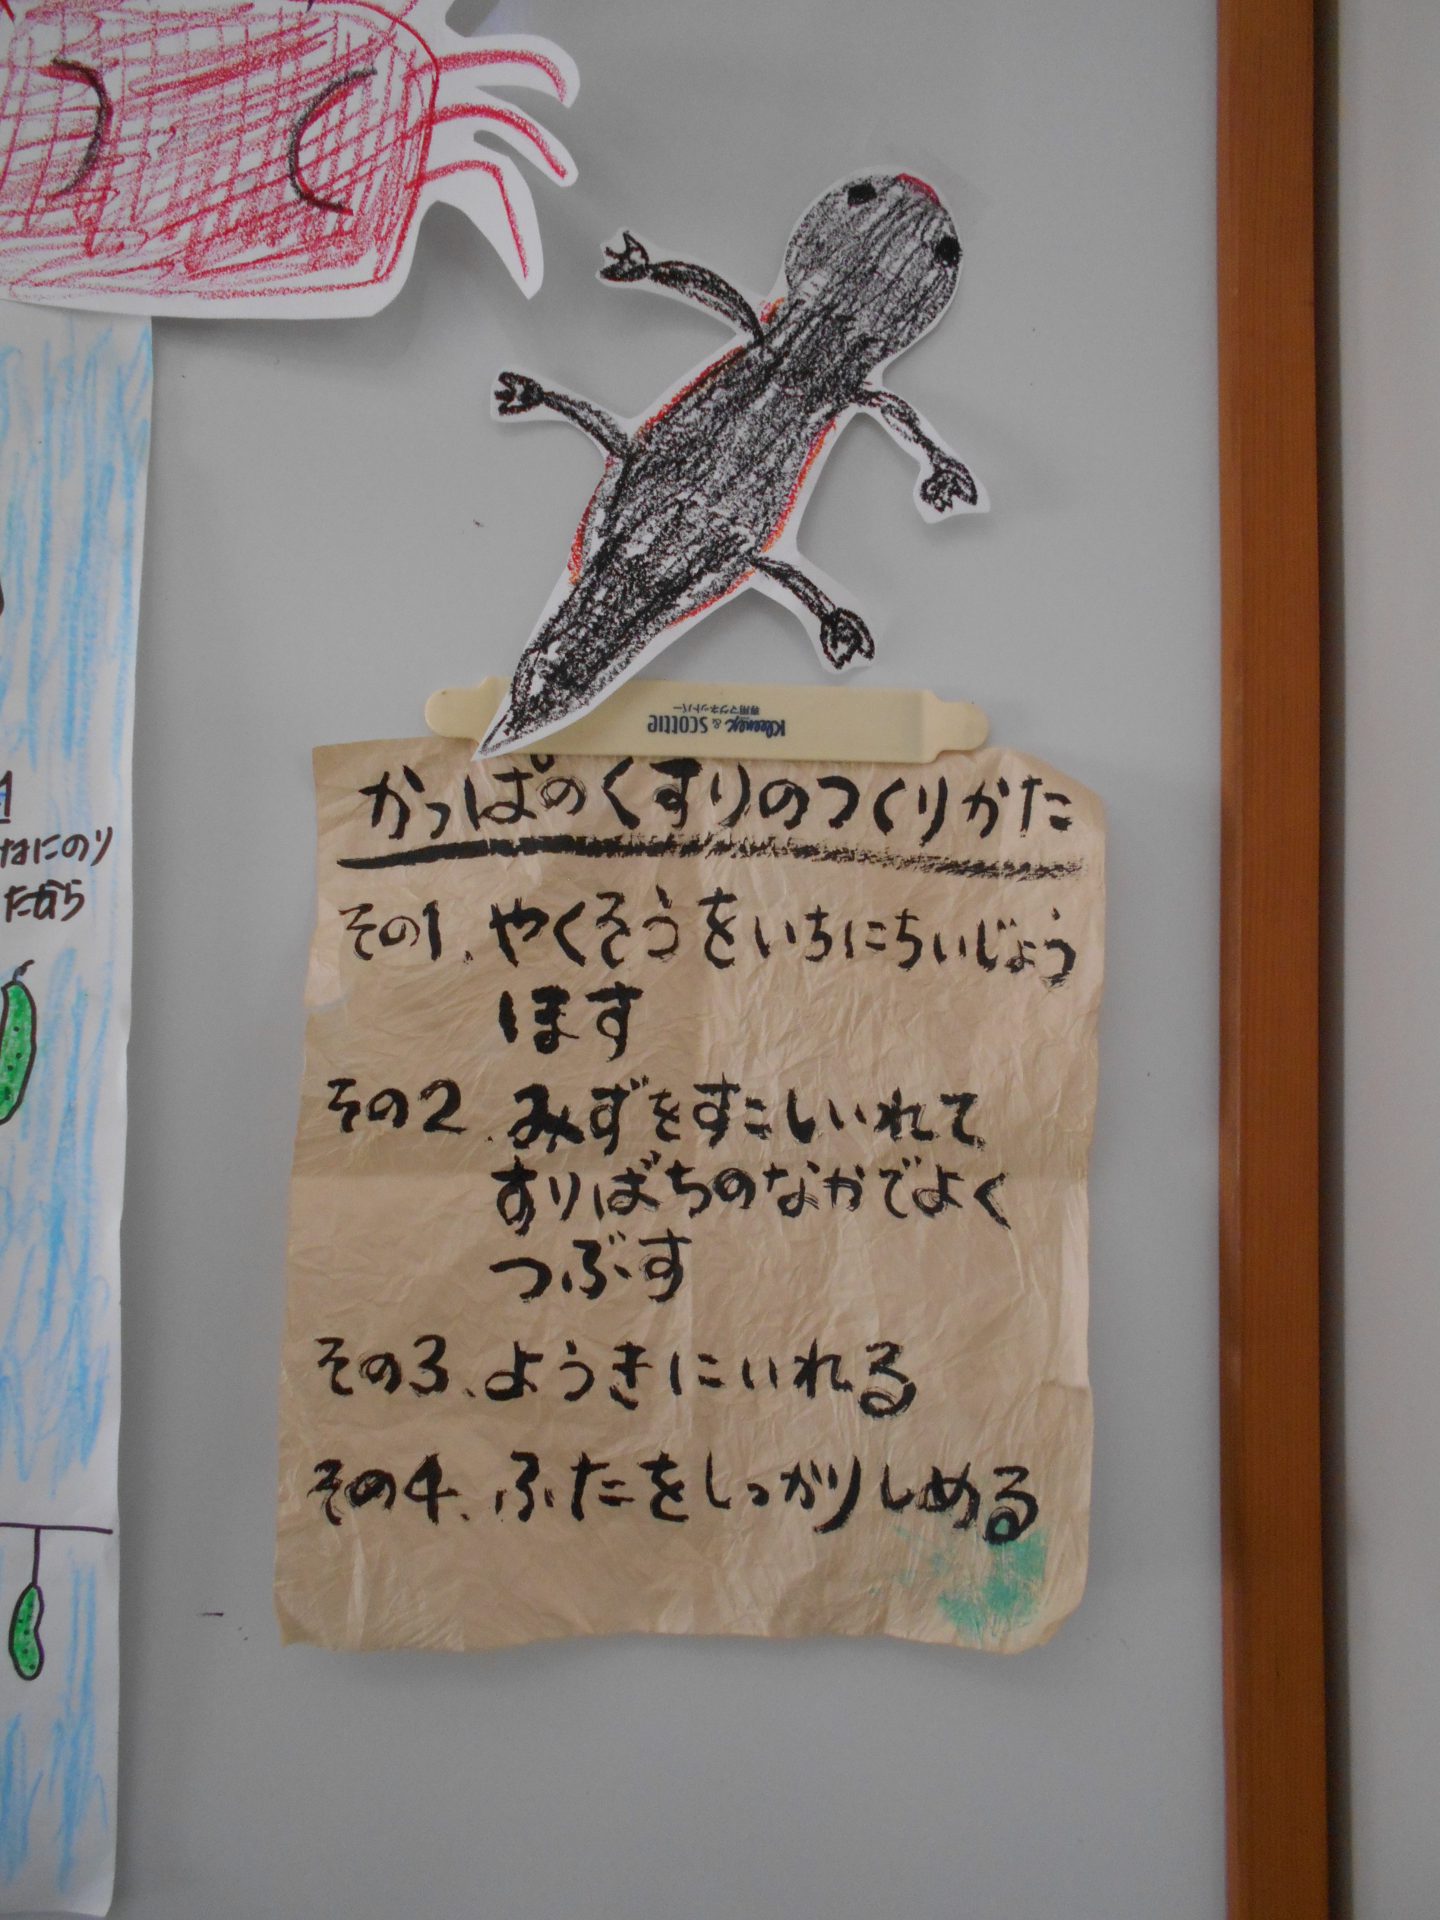 なにのり
たから
Kleenex & SCOTTIE
専用マグネットバー
かっぱのくすりのつくりかた
その1、やくそうをいちにちいじょう
ほす
その2、みずをすこしいれて
すりばちのなかでよく
つぶす
その3、ようきにいれる
その4、ふたをしっかりしめる